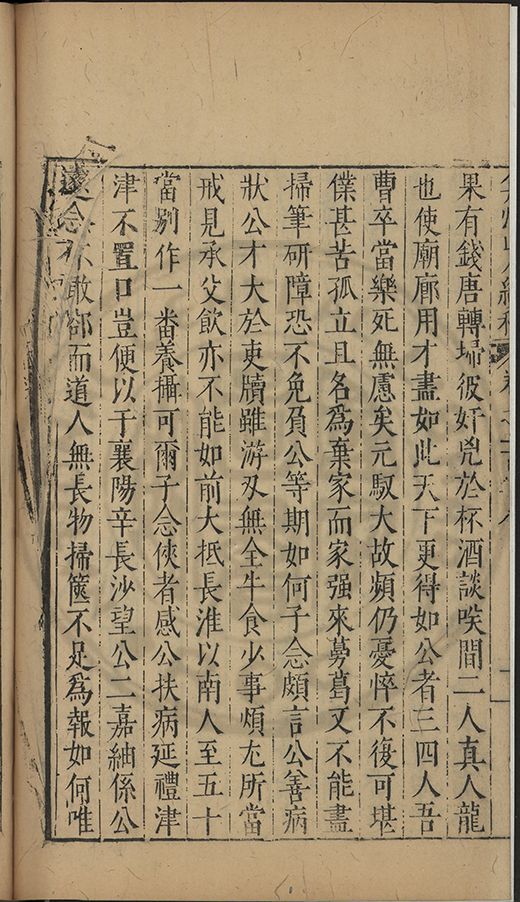 弇州山人續稿
果有錢唐轉塲彼奸兇於杯酒談咲間二人真人龍
也使廟廊用才盡如此天下更得如公者三四人吾
曹卒當樂死無慮矣元馭大故頻仍憂悴不復可堪
僕甚苦孤立且名爲棄家而家强來莮葛又不能盡
掃筆研障恐不免負公等期如何子念頗言公善病
狀公才大於吏牘雖游刄無全牛食少事煩尢所當
戒見承父飲亦不能如前大抵長淮以南人至五十
當别作一番養攝可爾子念俠者感公扶病延禮津
津不置口豈便以于襄陽辛長沙望公二嘉紬係公
遠念不敢郤而道人無長物掃篋不足爲報如何唯